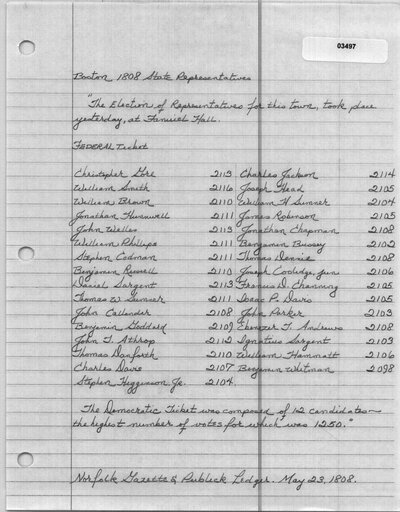 03497
Boston 1808 State Representatives
"The Election of Representatives for this town, took place
yesterday, at Faneuil Hall.
FEDERAL Ticket
Christopher Gore 2113 Charles Jackson 2114
William Smith 2116 Joseph Head 2105
William Brown 2110 William H Sumner 2104
Jonathan Hunnewell 2111 James Robinson 2105
John Welles 2113 Jonathan Chapman 2108
William Phillips 2111 Benjamin Bussey 2102
Stephen Codman 2111 Thomas Dennie 2108
Benjamin Russell 2110 Joseph Coolidge Jun 2106
Daniel Sargent 2113 Francis D. Channing 2105
Thomas W Sumner 2111 Isaac P. Davis 2105
John Callender 2108 John Parker 2103
Benjamin Goddard 2109 Ebenezer T. Andrews 2108
John T. Apthrop 2112 Ignatius Sargent 2103
Thomas Danforth 2110 William Hammatt 2106
Charles Davis 2107 Benjamin Whitman 2098
Stephen Higginson Jr. 2104
"The Democratic Ticket was composed of 12 candidates—
the highest number of votes for which was 1250."
Norfolk Gazette & Publick Ledger. May 23, 1808.